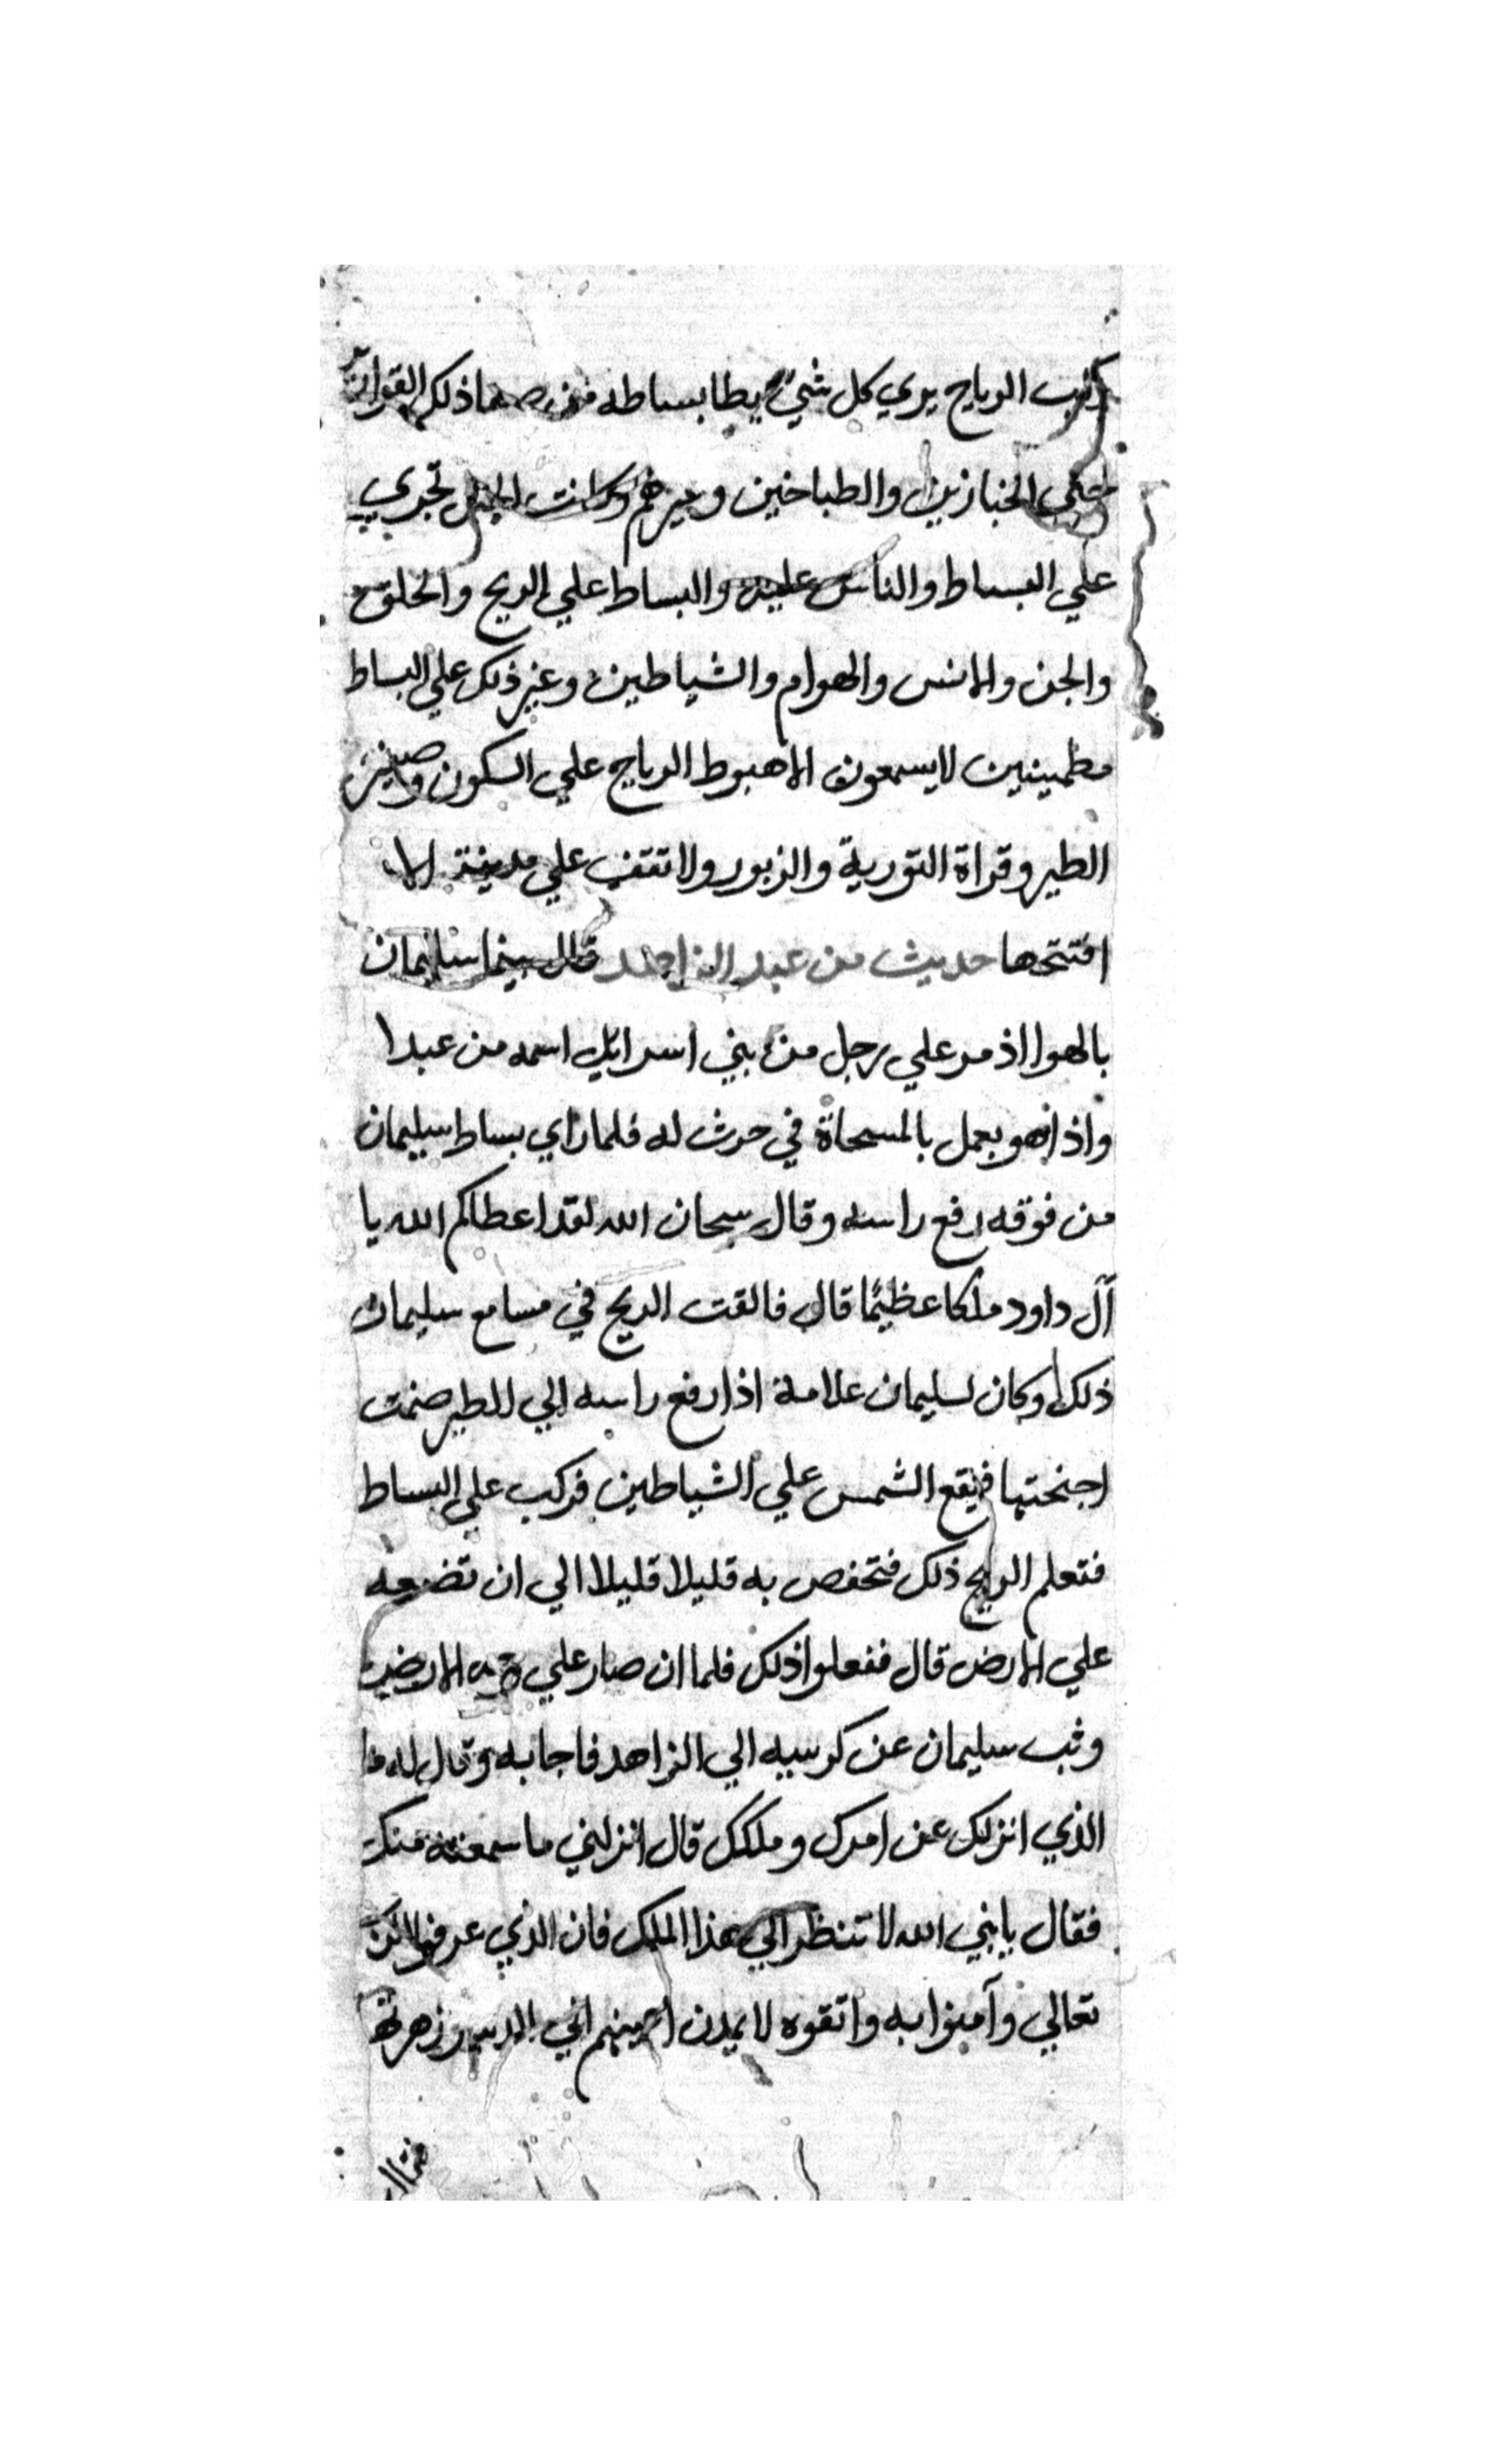 ركب الرياح يري كل شيء يطا بساطه فمن ذلك
حتي الخبازين والطباخين وغيرهم وكانت الخيل تجري
علي البساط والناس عليه والبساط علي الريح والخلق
والجن والانس والهوام والشياطين وغير ذلك علي البساط
مطمينين لا يسمعون الا هبوط الرياح علي السكون وصفير
الطير وقراة التورية والزبور ولا تقف علي مدينة الا
افتتحها حديث من عبد الزاهد قال بينما سليمان
بالهوا اذ مر علي رجل من بني اسرايل اسمه من عبدا
واذا هو يعمل بالمسحاة في حرث له فلما راي بساط سليمان
من فوقه رفع راسه وقال سبحان الله لقد اعطاكم الله يا
آل داود ملكا عظيمًا قال فالقت الريح في مسامع سليمان
ذلك وكان لسليمان علامة اذا رفع راسه الي الطير ضمت
اجنحتها فيقع الشمس علي الشياطين فركب علي البساط
فتعلم الريح ذلك فتخفض به قليلا قليلا الي ان تضعه
علي الارض قال ففعلوا ذلك فلما ان صار علي وجه الارض
وثب سليمان عن كرسيه الي الزاهد فاجابه وقال له ما
الذي انزلك عن امرك وملكك قال انزلني ما سمعته منك
فقال يا نبي الله لا تنظر الي هذا الملك فان الذي عرفوا الله
تعالي وآمنوا به واتقوه لا يمدن اعينهم الي الدنيا وزهرتها
فقال